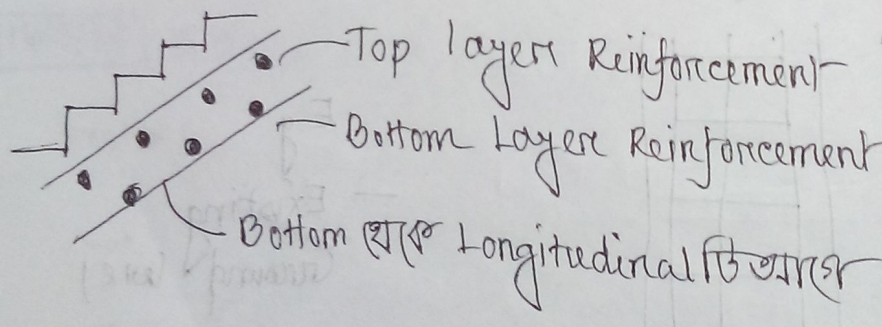 Top layer Reinforcement
Bottom Layer Reinforcement
Bottom থেকে Longitudinal টি আগে